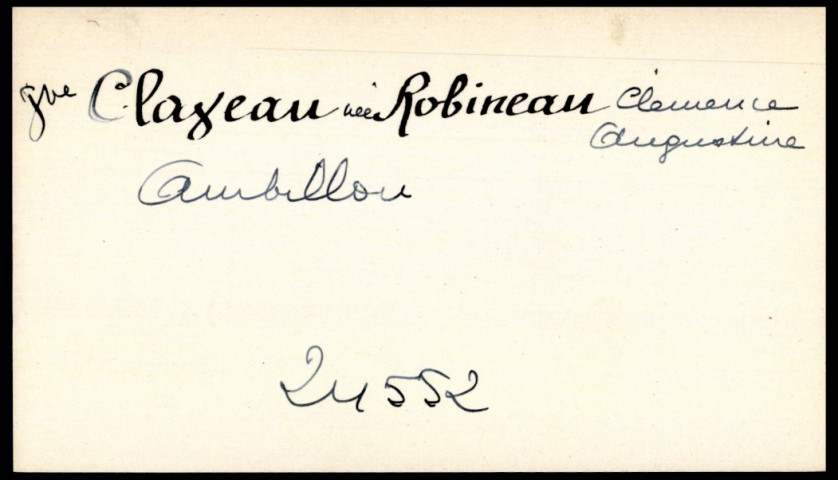 Vve Claveau née Robineau Clémence
Augustine
Ambillou
24552